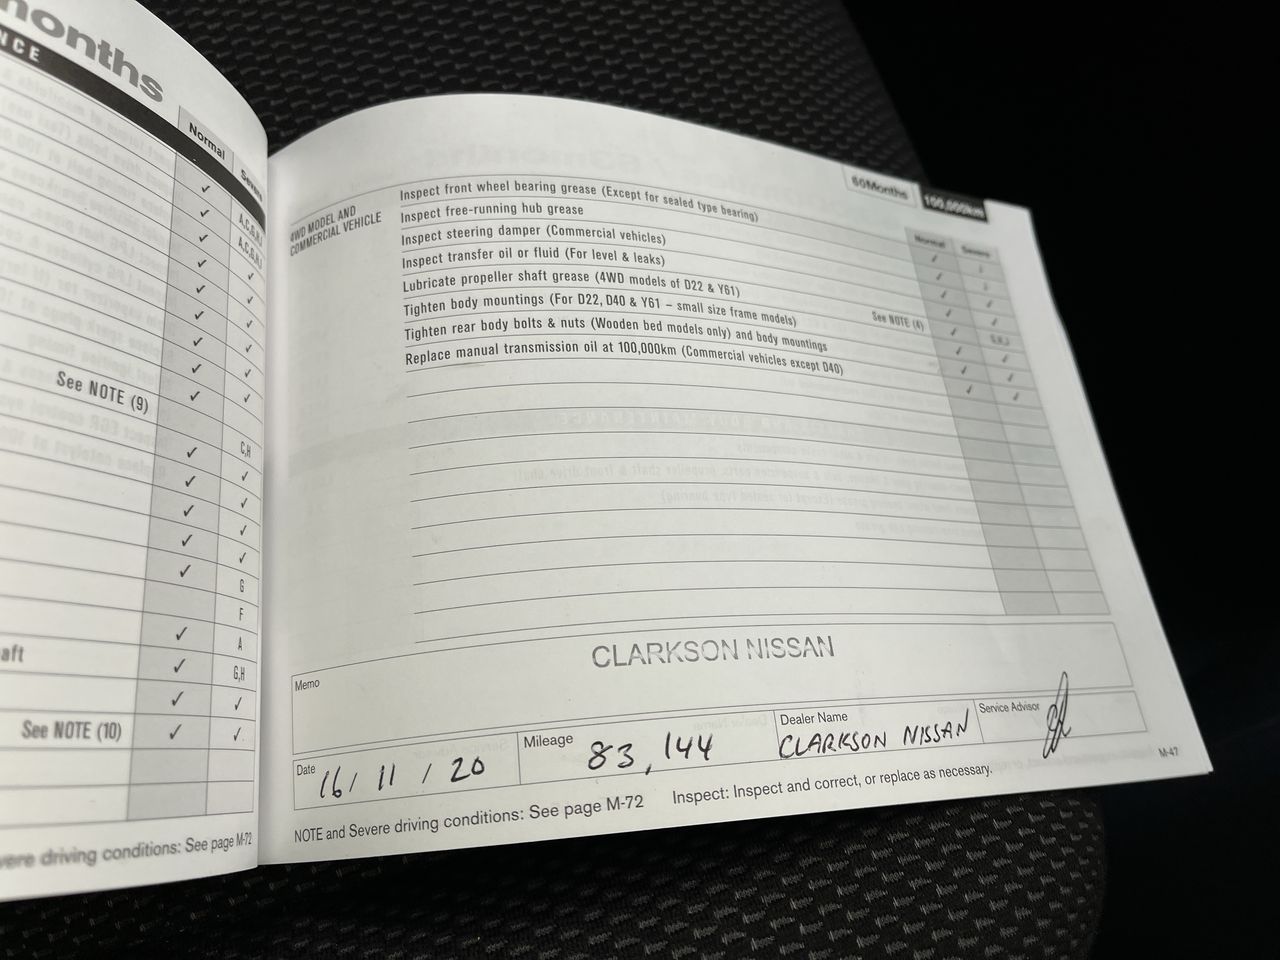 months
NCE
Normal
Severe
✓
✓ A,C,G,H,I
✓ A,C,G,H,I
✓ ✓
✓ ✓
✓ ✓
✓ ✓
✓ ✓
See NOTE (9) ✓ ✓
C,H
✓ ✓
✓ ✓
✓ ✓
✓ ✓
✓ G
F
✓ A
aft ✓ G,H
✓ ✓
See NOTE (10) ✓ ✓
vere driving conditions: See page M-72
60Months 100,000km
Normal Severe
4WD MODEL AND
COMMERCIAL VEHICLE
Inspect front wheel bearing grease (Except for sealed type bearing)
Inspect free-running hub grease
Inspect steering damper (Commercial vehicles)
Inspect transfer oil or fluid (For level & leaks)
Lubricate propeller shaft grease (4WD models of D22 & Y61)
Tighten body mountings (For D22, D40 & Y61 – small size frame models) See NOTE (4)
Tighten rear body bolts & nuts (Wooden bed models only) and body mountings
Replace manual transmission oil at 100,000km (Commercial vehicles except D40)
CLARKSON NISSAN
Memo
Date 16/11/20 Mileage 83,144 Dealer Name CLARKSON NISSAN Service Advisor
NOTE and Severe driving conditions: See page M-72 Inspect: Inspect and correct, or replace as necessary.
M-47